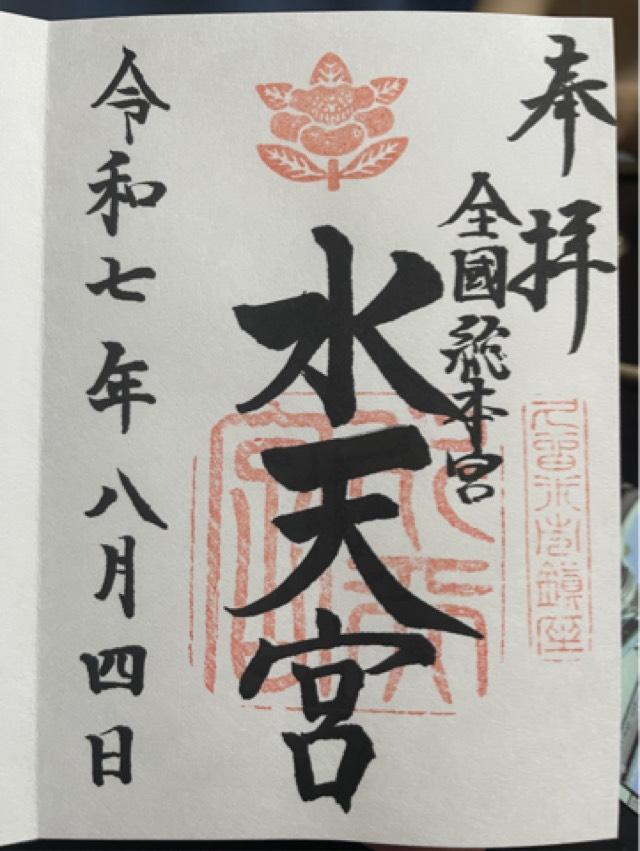 奉拝
全國総本宮
久留米市鎮座
水天宮
水天宮
令和七年八月四日